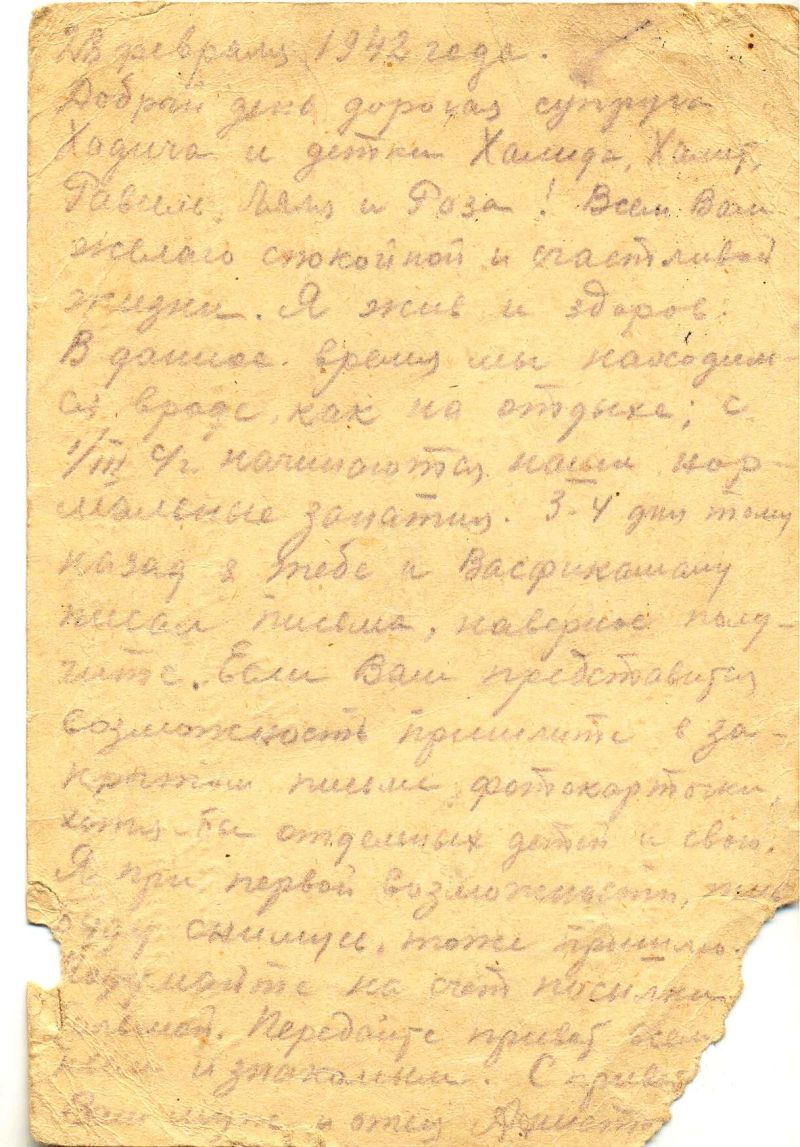 28 февраля 1942 года.
Добрый день дорогая супруга
Хадича и детки Халида, Халит,
Равиль, Ляля и Роза! Всем Вам
желаю спокойной и счастливой
жизни. Я жив и здоров.
В данное время мы находим-
ся вроде как на отдыхе; с
1/III с/г. начинаются наши нор-
мальные занятия. 3-4 дня тому
назад я тебе и
писал письма, наверное полу-
чите. Если Вам представится
возможность пришлите в за-
крытом письме фотокарточки,
хотя-бы отдельных детей и свою.
Я при первой возможности, жив
буду снимусь, тоже пришлю.
Подумайте на счет посылки
Передайте привет всем
и знакомым. С
Ваш муж и отец